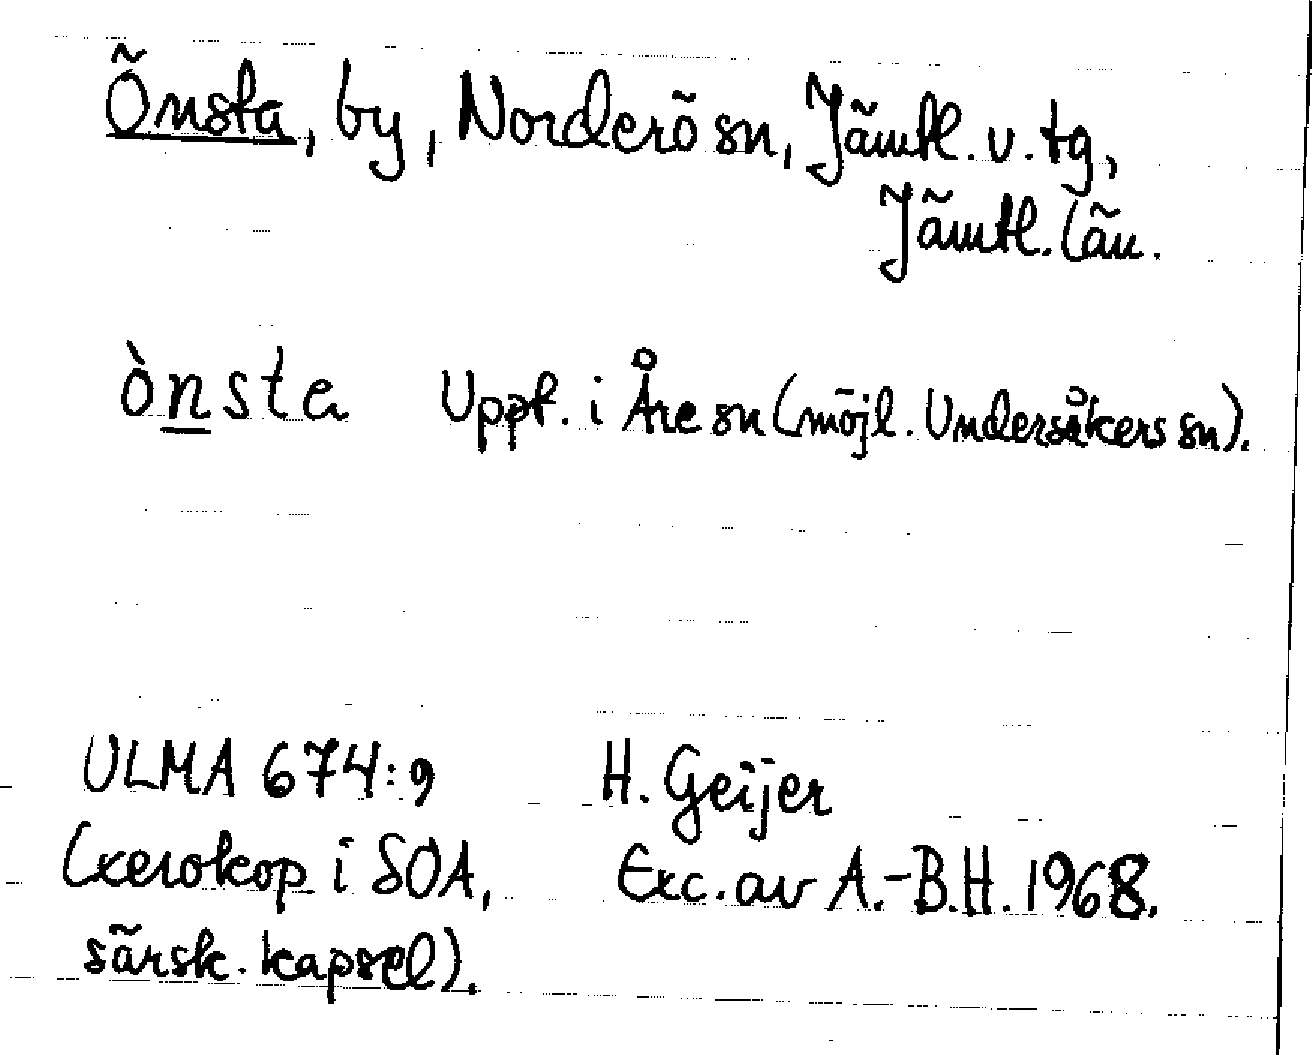 Önsta, by, Norderö sn, Jämtl. v. tg,
Jämtl. län.
ònsta Uppt. i Åre sn (möjl. Undersåkers sn).
ULMA 674:9 H. Geijer
(xerokop i SOA, Exc. av A.-B.H. 1968.
särsk. kapsel).